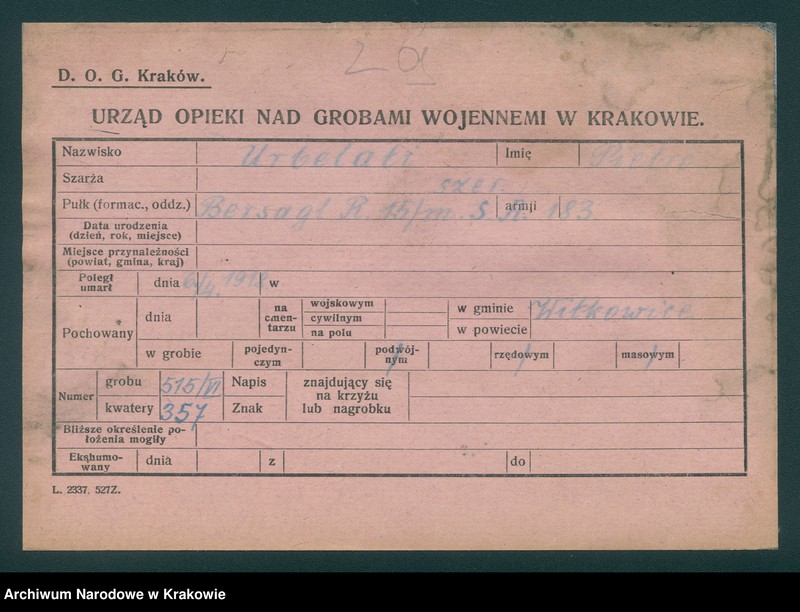 2a
D. O. G. Kraków.
URZĄD OPIEKI NAD GROBAMI WOJENNEMI W KRAKOWIE.
Nazwisko Urbelati Imię Pietro
Szarża szer.
Pułk (formac., oddz.) Bersagl R. 15/m. S armji 183
Data urodzenia
(dzień, rok, miejsce)
Miejsce przynależności
(powiat, gmina, kraj)
Poległ
umarł dnia 6/4. 1918 w
Pochowany dnia na cmen-tarzu wojskowym cywilnym na polu w gminie Witkowice w powiecie
w grobie pojedyn-czym podwój-nym rzędowym masowym
Numer grobu 515/VI Napis znajdujący się
kwatery 357 Znak na krzyżu lub nagrobku
Bliższe określenie po-
łożenia mogiły
Ekshumo-
wany dnia z do
L. 2337. 527Z.
Archiwum Narodowe w Krakowie